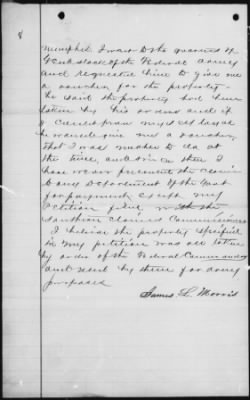 8
Memphis I went to the quarters of
of the Federal Army
and requested him to give me
a voucher for the property.
He said the property had been
taken by his orders and if
I
he would give me a voucher,
that I was unable to do at
the time, and since then I
have never presented the claim
to any Department of the Govt
for payment except my
Petition filed with the
Southern Claims Commissioners
I believe the property specified
in my petition was all taken
by order of the Federal Commander
and used by them for army
purposes
James L. Morris